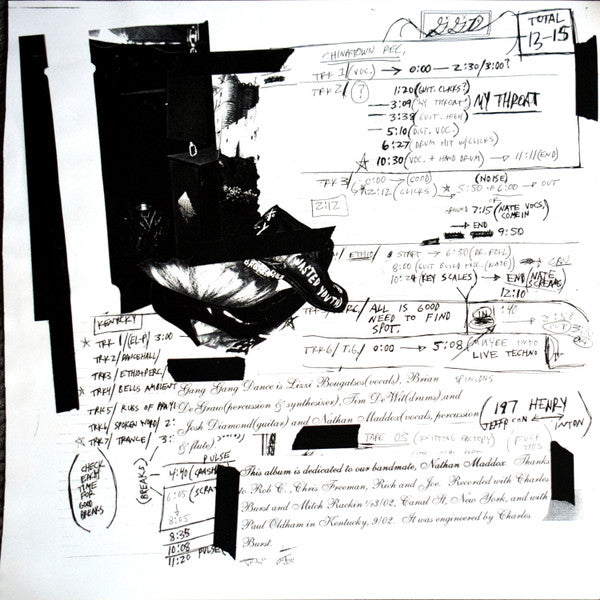 GGD
TOTAL
13-15
CHINATOWN REC.
TRK 1/(VOC.) → 0:00 — 2:30/3:00?
TRK 2/(?) 1:20(GUIT. CLICKS?)
3:09("MY THROAT") MY THROAT
3:38(GUIT. HIGH)
5:10(DIST. VOC.)
6:27(DRUM HIT W/CLICKS)
10:30(VOC. + HAND DRUM) → 11:11(END)
TRK 3/ 0:00 → (GOOD) (NOISE)
2:12(CLICKS) 5:50 → 6:00 → OUT
2:12
7:15(NATE VOCS. COME IN
→ END
9:50
ETHIO/ START → 6:30(DR. ROLL)
8:00(GUIT BUILD (NATE)
10:24(KEY SCALES) → END (NATE SCREAMS)
12:10
(WASTED YOUTH)
ALL IS GOOD
NEED TO FIND
SPOT.
:40
TRK 6/T.G./ 0:00 → 5:08
MAYBE INTO
LIVE TECHNO
KENTUCKY
TRK 1/(EL-P) 3:00
TRK 2/DANCEHALL/
TRK 3/ETHIO+PERC/
TRK 4/BELLS AMBIENT
TRK 5/RUBS OF
TRK 6/SPOKEN WORD 2:
TRK 7/TRANCE/ 3:
Gang Gang Dance is Lizzi Bougatsos(vocals), Brian
DeGraw(percussion & synthesizer), Tim DeWit(drums) and
Josh Diamond(guitar) and Nathan Maddox(vocals, percussion
& flute)
(197 HENRY
JEFFERSON ← → CLINTON)
TAPE 05 (KNITTING FACTORY)
PULSE
CHECK
EACH
TIME
FOR
GOOD
BREAKS
(BREAKS)
4:40
6:05
↓
8:05
8:35
10:08
11:20 PULSE
This album is dedicated to our bandmate, Nathan Maddox. Thanks
to Rob C., Chris Freeman, Rich and Joe. Recorded with Charles
Burst and Mitch Rackin 1/23/02, Canal St, New York, and with
Paul Oldham in Kentucky, 9/02. It was engineered by Charles
Burst.